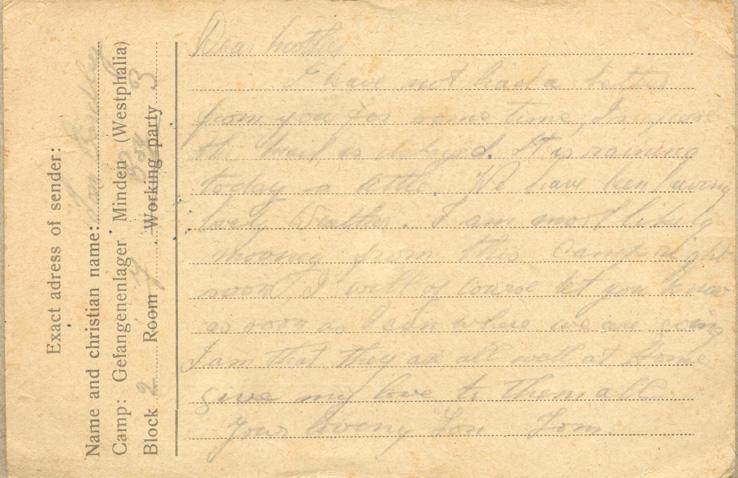 Exact adress of sender:
Name and christian name: Tom
Camp: Gefangenenlager Minden (Westphalia)
Block 2 Room 7 Working party 3
Dear Mother
I have not had a letter
from you for some time, I suppose
the mail is delayed. It is raining
today a little. We have been having
lovely Weather. I am most likely
moving from this camp right
soon, I will of course let you know
as soon as I can where we are going
I am that they are all well at Home
give my love to them all
Your loveing Son Tom